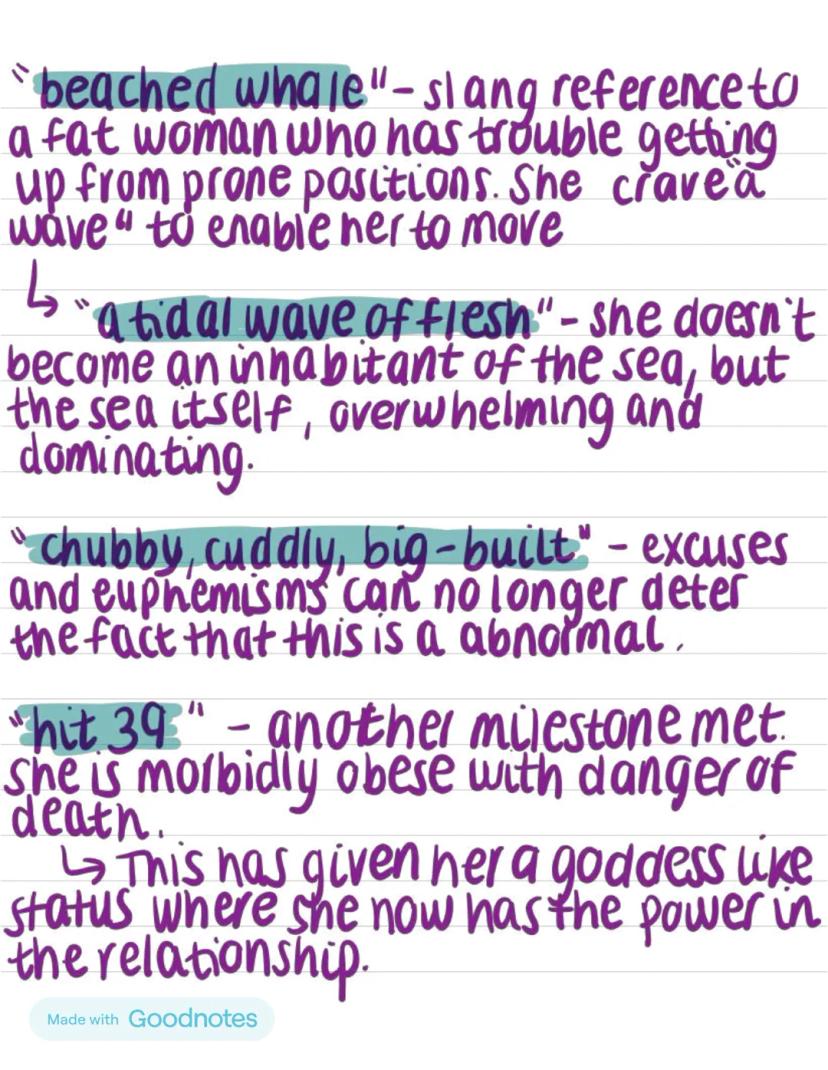 "beached whale" - slang reference to
a fat woman who has trouble getting
up from prone positions. She crave "a
wave" to enable her to move
↳ "a tidal wave of flesh" - she doesn't
become an inhabitant of the sea, but
the sea itself, overwhelming and
dominating.
"chubby, cuddly, big-built" - excuses
and euphemisms can no longer deter
the fact that this is a abnormal.
"hit 39" - another milestone met.
she is morbidly obese with danger of
death.
↳ This has given her a goddess like
status where she now has the power in
the relationship.
Made with Goodnotes